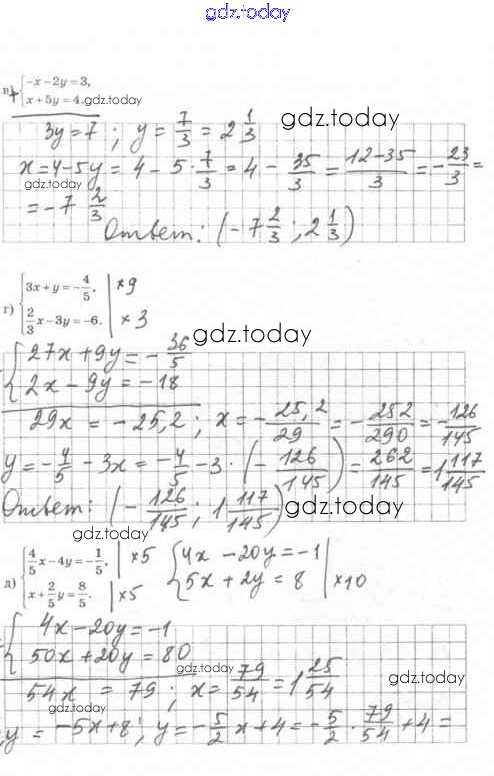 gdz.today
в) { -x - 2y = 3,
x + 5y = 4. gdz.today
3y = 7 ; y = 7/3 = 2 1/3 gdz.today
x = 4 - 5y = 4 - 5 · 7/3 = 4 - 35/3 = (12 - 35)/3 = - 23/3 =
gdz.today
= -7 2/3
Ответ: (-7 2/3 ; 2 1/3)
г) { 3x + y = - 4/5, | ×9
2/3 x - 3y = -6. | ×3
gdz.today
{ 27x + 9y = - 36/5
2x - 9y = -18
29x = -25,2 ; x = - 25,2/29 = - 252/290 = - 126/145
y = - 4/5 - 3x = - 4/5 - 3 · (- 126/145) = 262/145 = 1 117/145
Ответ: (- 126/145 ; 1 117/145) gdz.today
gdz.today
д) { 4/5 x - 4y = - 1/5, | ×5 { 4x - 20y = -1
x + 2/5 y = 8/5. | ×5 5x + 2y = 8 | ×10
{ 4x - 20y = -1
50x + 20y = 80 gdz.today
54x = 79 ; x = 79/54 = 1 25/54 gdz.today
y = -5x + 8 ; y = - 5/2 x + 4 = - 5/2 · 79/54 + 4 =
gdz.today